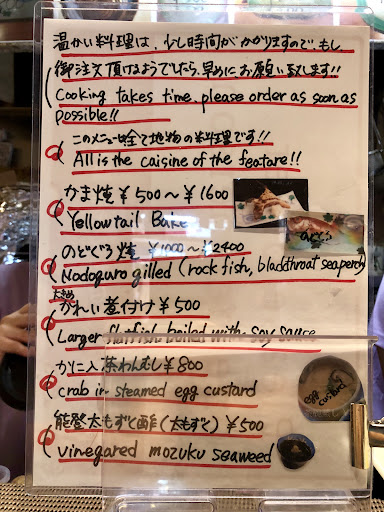 温かい料理は、少し時間がかかりますので、もし
御注文頂けるようでしたら、早めにお願い致します!!
Cooking takes time, please order as soon as
possible!!
このメニューは全て地物の料理です!!
All is the caisine of the featare!!
かま焼 ¥500〜¥1600
Yellowtail Bake
のどぐろ焼 ¥1000〜¥2400
Nodoguro gilled (rock fish, bladdthroat seaperch)
かれい煮付け ¥500
Larger flatfish boiled with soy sauce
かに入茶わんむし ¥800
crab in steamed egg custard
egg
custard
能登太もずく酢(太もずく) ¥500
vinegared mozuku seaweed